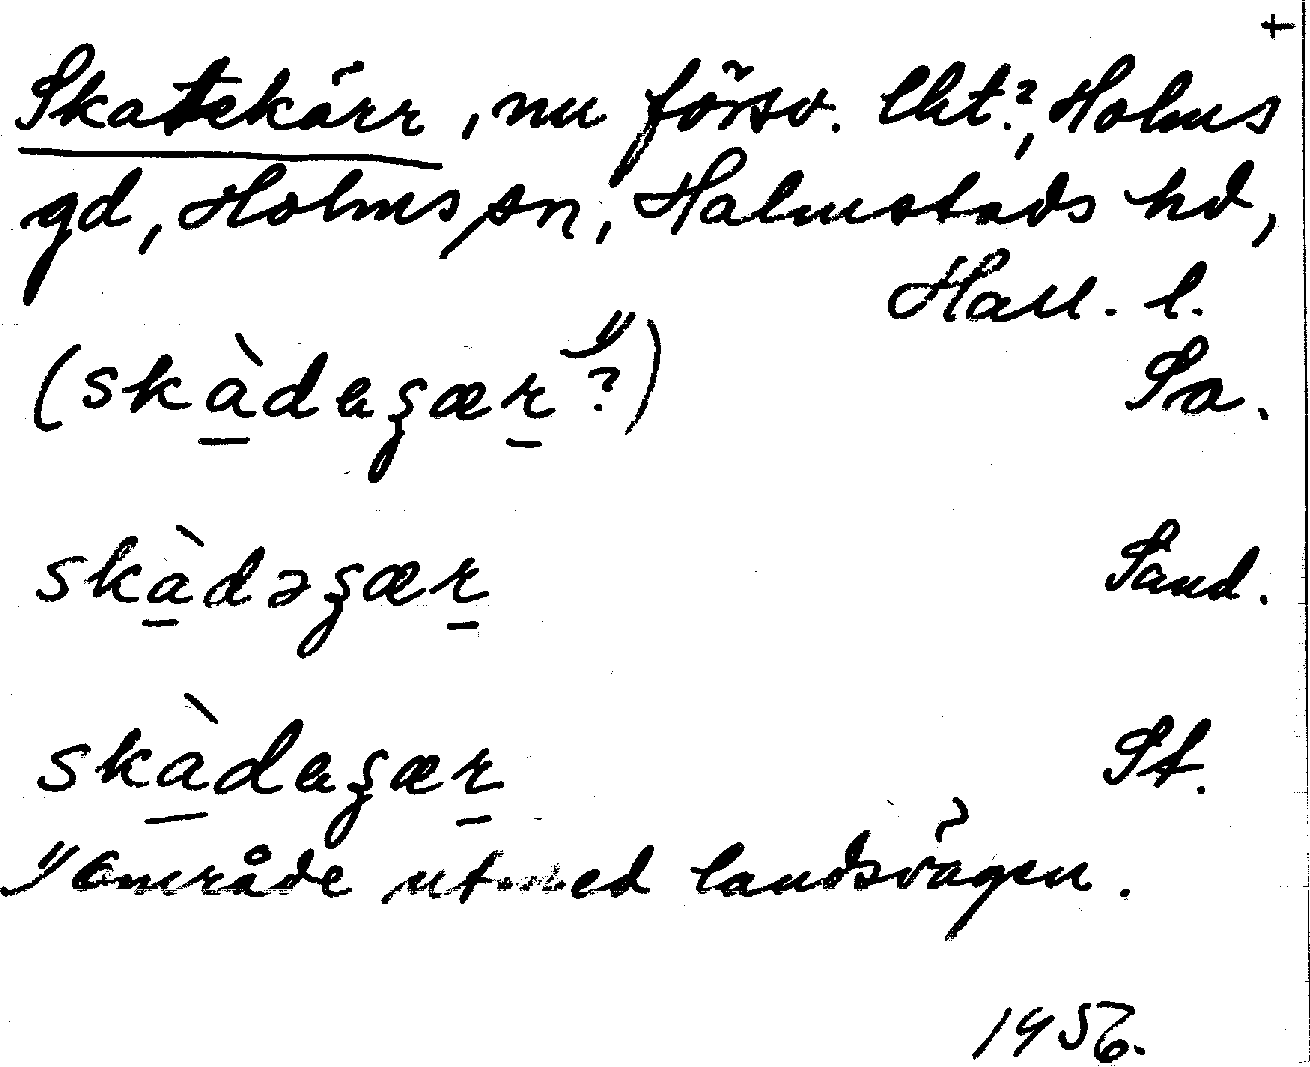 +
Skatekärr, nu försv. lht?, Holms
gd, Holms sn, Halmstads hd,
Hall. l.
(skàdaʒær 1) ?) Sa.
skàdəʒær Sand.
skàdaʒær St.
1) Område utmed landsvägen.
1956.